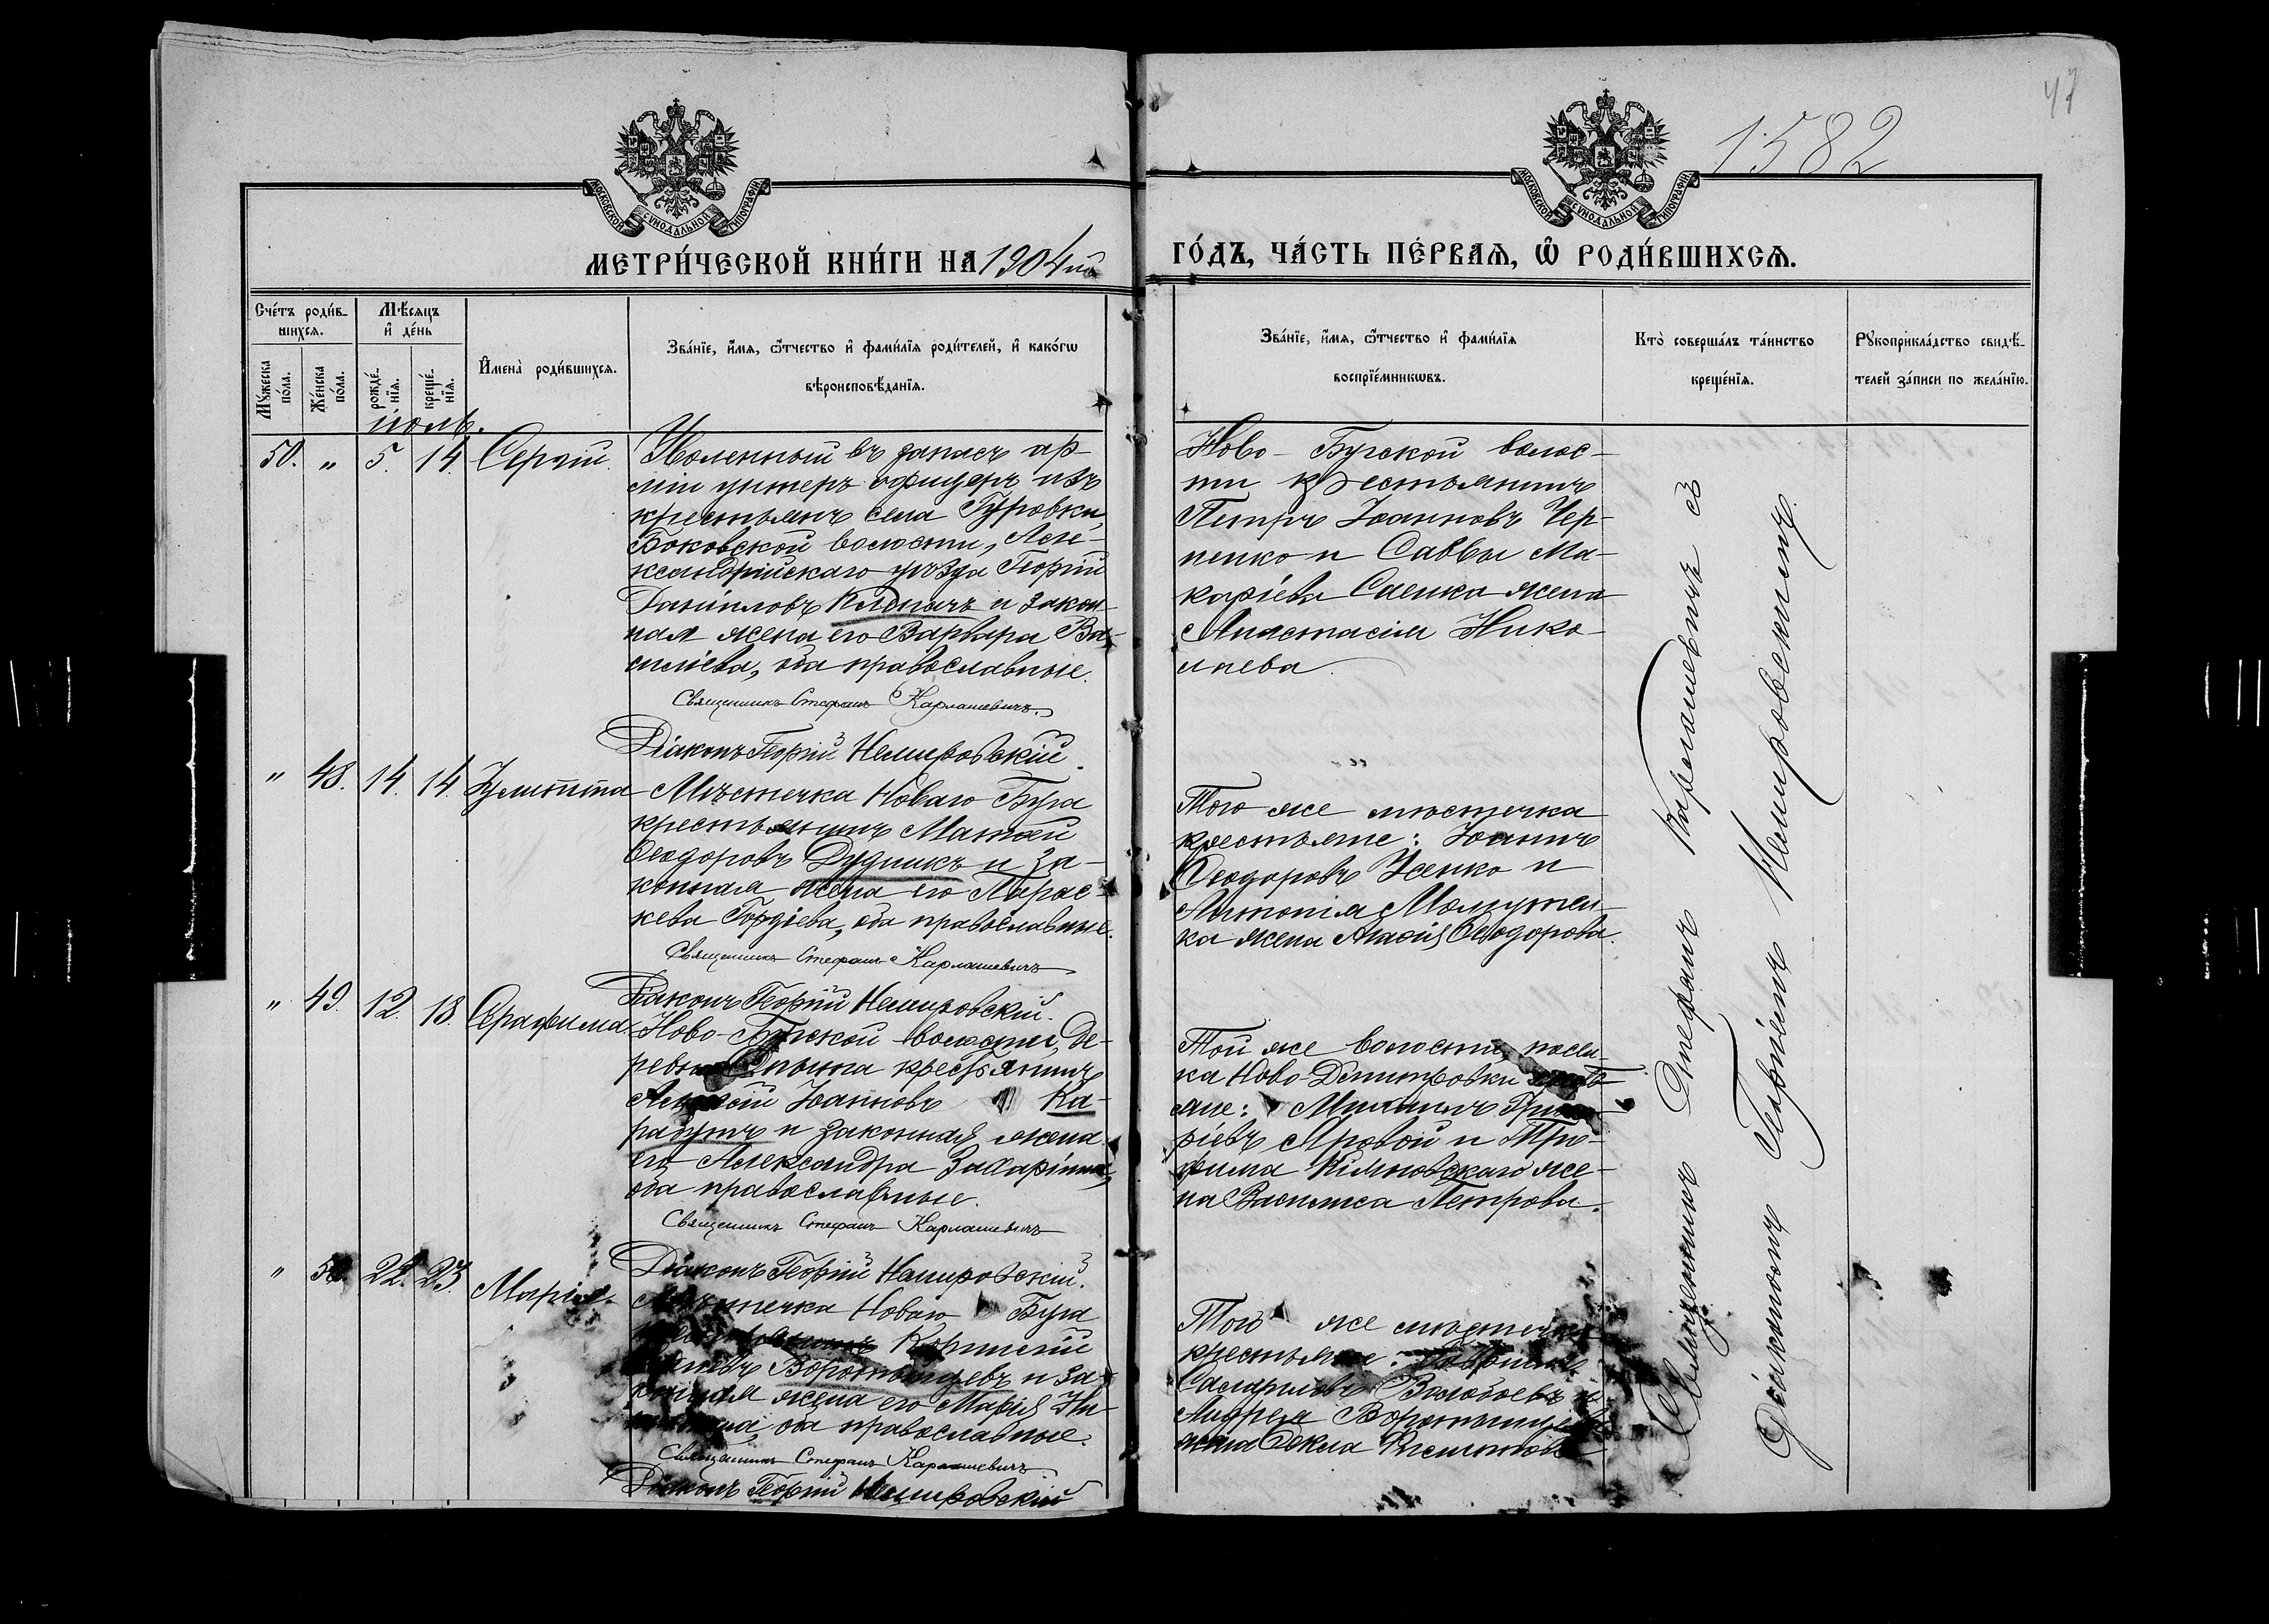 47
1582
МОСКОВСКОЙ СѴНОДАЛЬНОЙ ТИПОГРАФІИ
МОСКОВСКОЙ СѴНОДАЛЬНОЙ ТИПОГРАФІИ
МЕТРИ́ЧЕСКОЙ КНИ́ГИ НА 1904й
ГО́ДЪ, ЧА́СТЬ ПЕ́РВАѦ, Ѽ РОДИ́ВШИХСѦ.
Сче́тъ роди́в-
шихсѧ.
Мꙋ́жеска по́ла.
Же́нска по́ла.
Мѣ́сѧцъ
и҆ де́нь
рожде́-
нїѧ.
креще́-
нїѧ.
И҆мена̀ роди́вшихсѧ.
Зва́нїе, и҆́мѧ, ѻ҆́тчество и҆ фами́лїѧ роди́телей, и҆ како́гѡ
вѣроисповѣ́данїѧ.
Зва́нїе, и҆́мѧ, ѻ҆́тчество и҆ фами́лїѧ
воспрїе́мникѡвъ.
Кто̀ соверша́лъ та́инство
креще́нїѧ.
Рꙋкоприкла́дство свидѣ́-
телей за́писи по жела́нїю.
іюль.
50. " 5. 14. Сергій.
Уволенный въ запасъ ар-
міи унтеръ офицеръ изъ
крестьянъ села Гуровки,
Боковской волости, Але-
ксандрійскаго уѣзда Георгій
Даніиловъ и закон-
ная жена его Варвара Ва-
силіева, оба православные.
Священникъ Стефанъ Карпашевичъ.
Діаконъ Георгій Немировскій.
Ново-Бугской волос-
ти крестьянинъ
Петръ Іоанновъ Чер-
ненко и Саввы Ма-
каріева Саенка жена
Анастасія Нико-
лаева.
" 48. 14. 14. Іулитта
Мѣстечка Новаго Буга
крестьянинъ Матѳей
Ѳеодоровъ Дудникъ и за-
конная жена его Парас-
кева Гордіева, оба православные.
Священникъ Стефанъ Карпашевичъ
Діаконъ Георгій Немировскій.
Того же мѣстечка
крестьяне: Іоаннъ
Ѳеодоровъ Усенко и
Антонія
ка жена Ѳеодорова.
" 49. 12. 18. Серафима
Ново-Бугской волости, де-
ревни крестьянинъ
Алексій Іоанновъ Ка-
рабутъ и законная жена
его Александра Захаріина,
оба православные.
Священникъ Стефанъ Карпашевичъ
Діаконъ Георгій Немировскій.
Той же волости, посел-
ка Ново-Дмитровки
яне: Михаилъ Григо-
ріевъ Яровой и Тро-
фима же-
на Василиса Петрова.
" 50. 22. 23. Марія.
Мѣстечка Новаго Буга
крестьянинъ Корнилій
Воротынцевъ и за-
конная жена его Марія
оба православные.
Священникъ Стефанъ Карпашевичъ
Діаконъ Георгій Немировскій
Того же мѣстечка
крестьяне: Гавріилъ
и
Андрея Воротынцева
жена Ѳекла
Священникъ Стефанъ Карпашевичъ съ
Діакономъ Георгіемъ Немировскимъ.